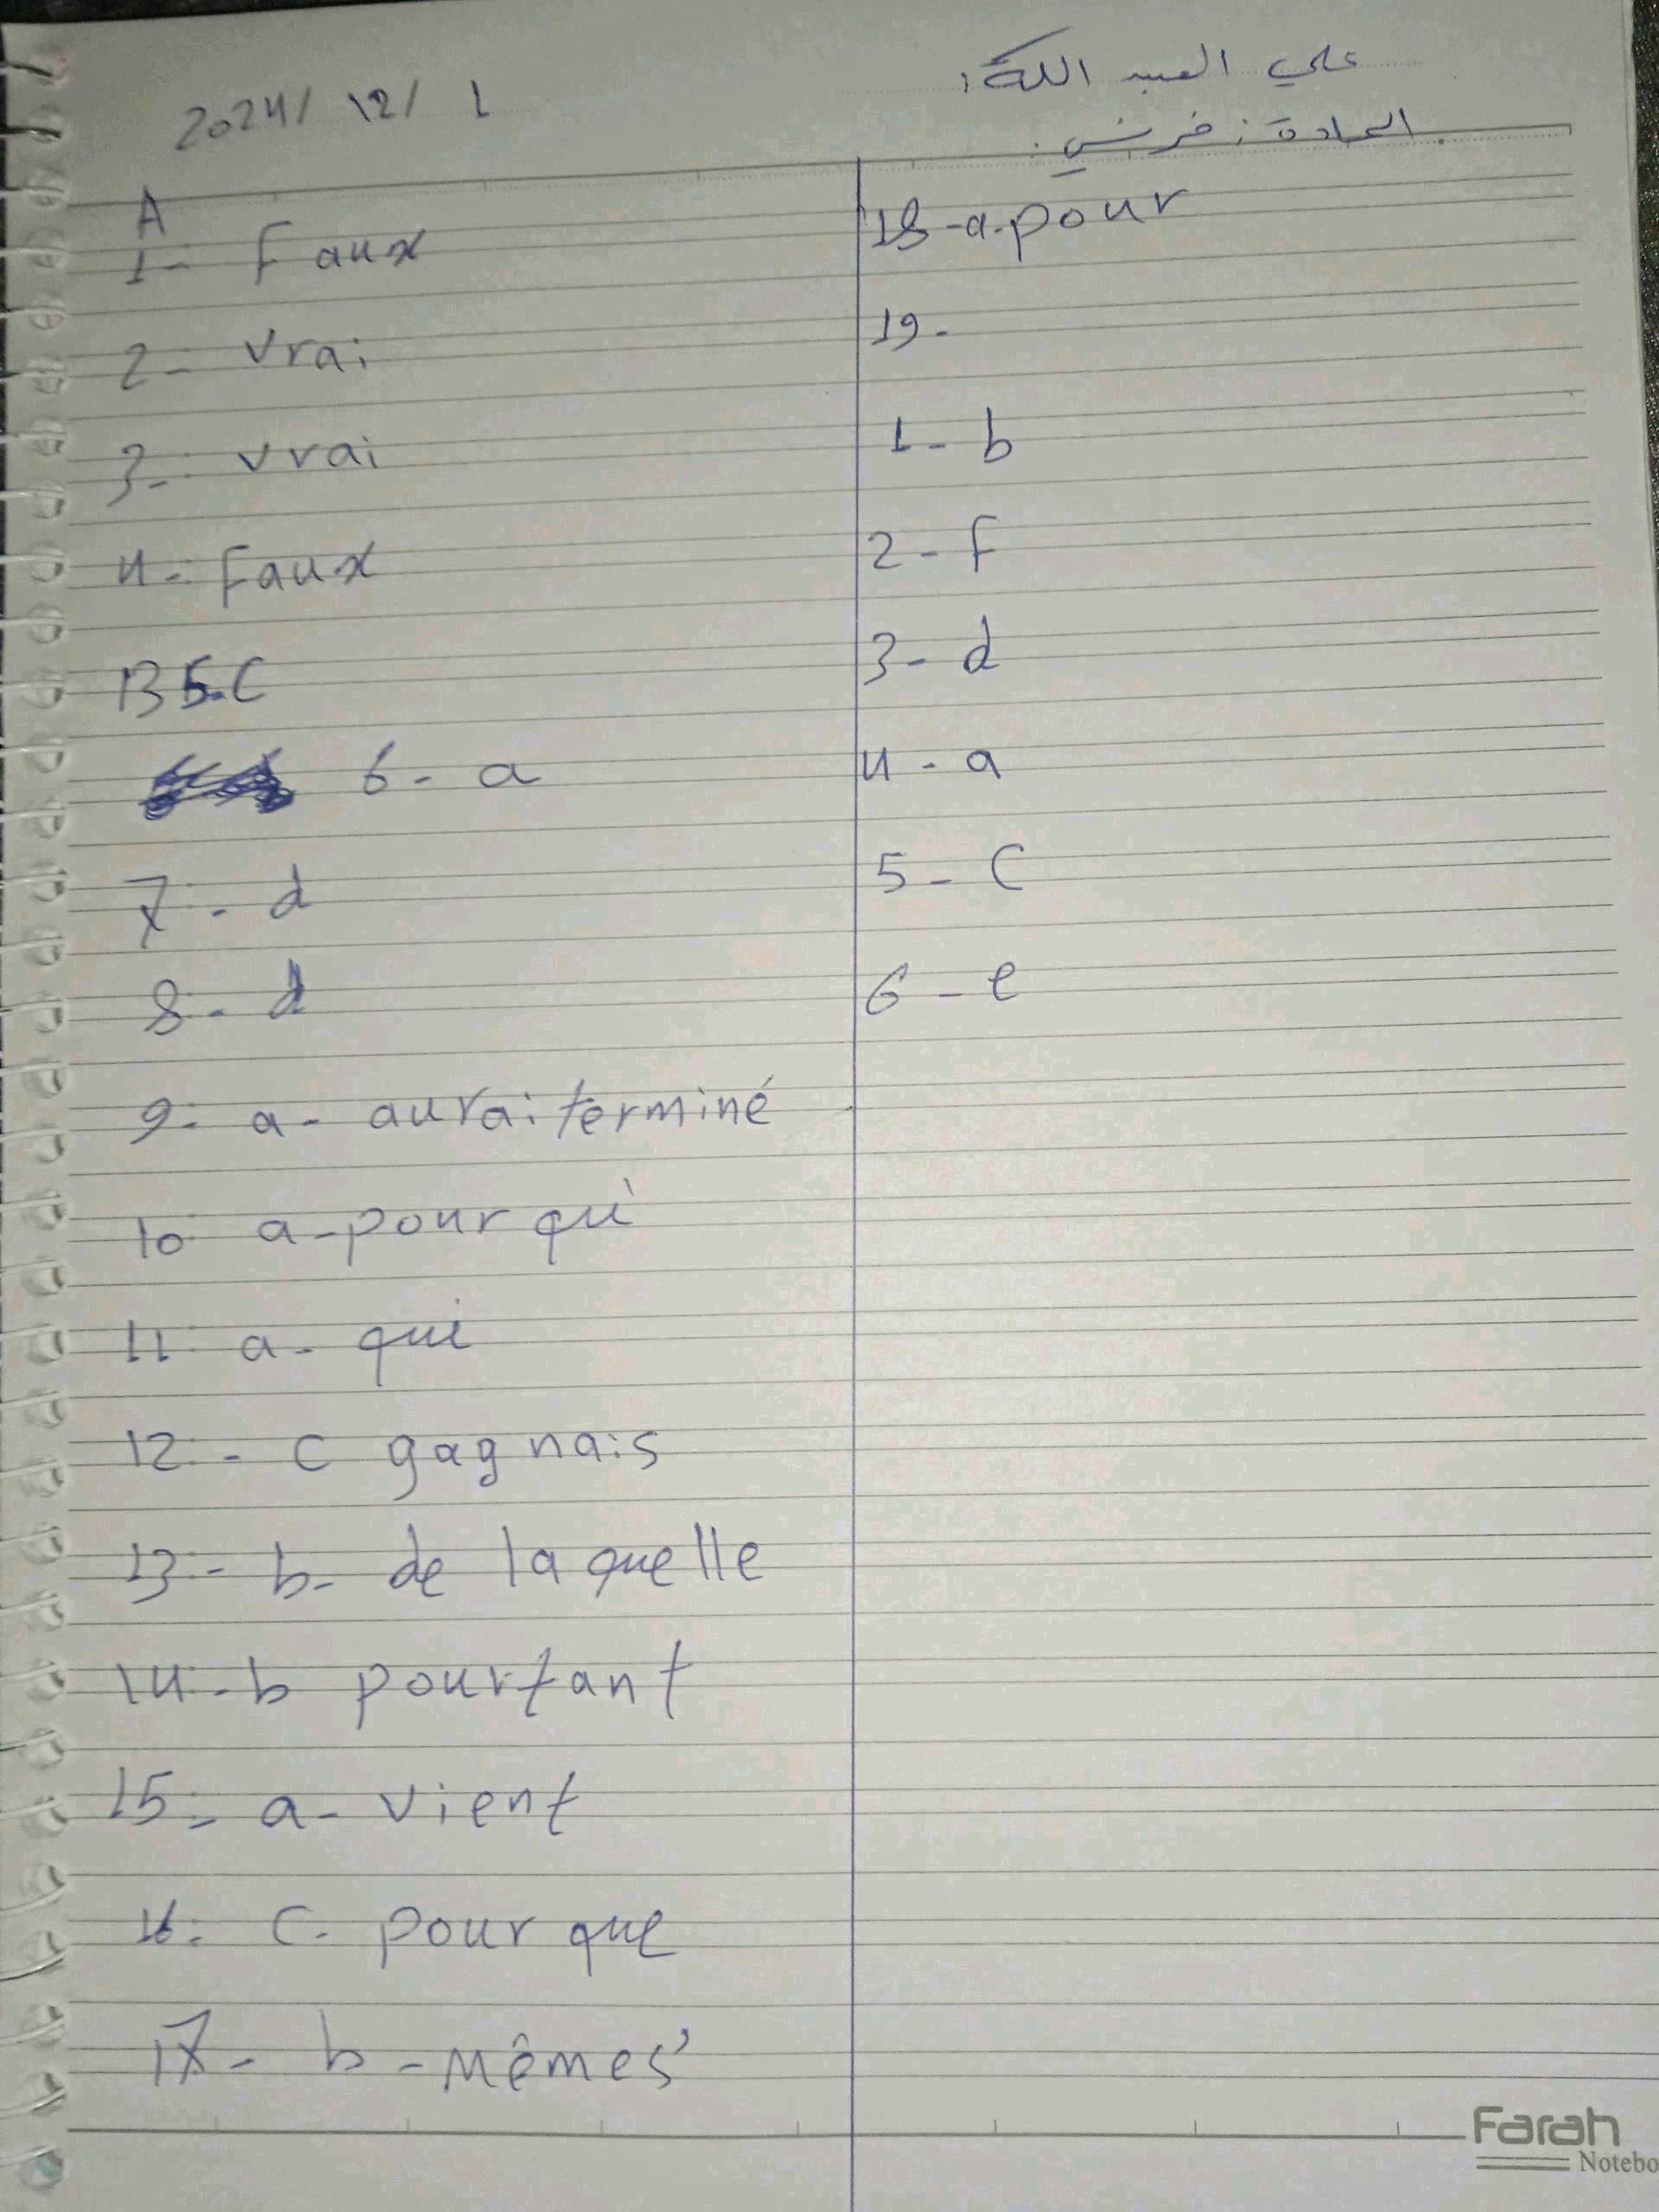 علي العبد الله
المادة: فرنسي.
2024/ 12/ 1
A
1- Faux
2- Vrai
3- vrai
4- Faux
B 5.C
6- a
7- d
8- d
9- a- aurai terminé
10- a-pour qui
11- a- qui
12- c gagnais
13- b- de laquelle
14- b pourtant
15- a- vient
16- c- pour que
17- b -mêmes
18-a-pour
19-
1- b
2- F
3- d
4- a
5- C
6- e
Farah
Notebo